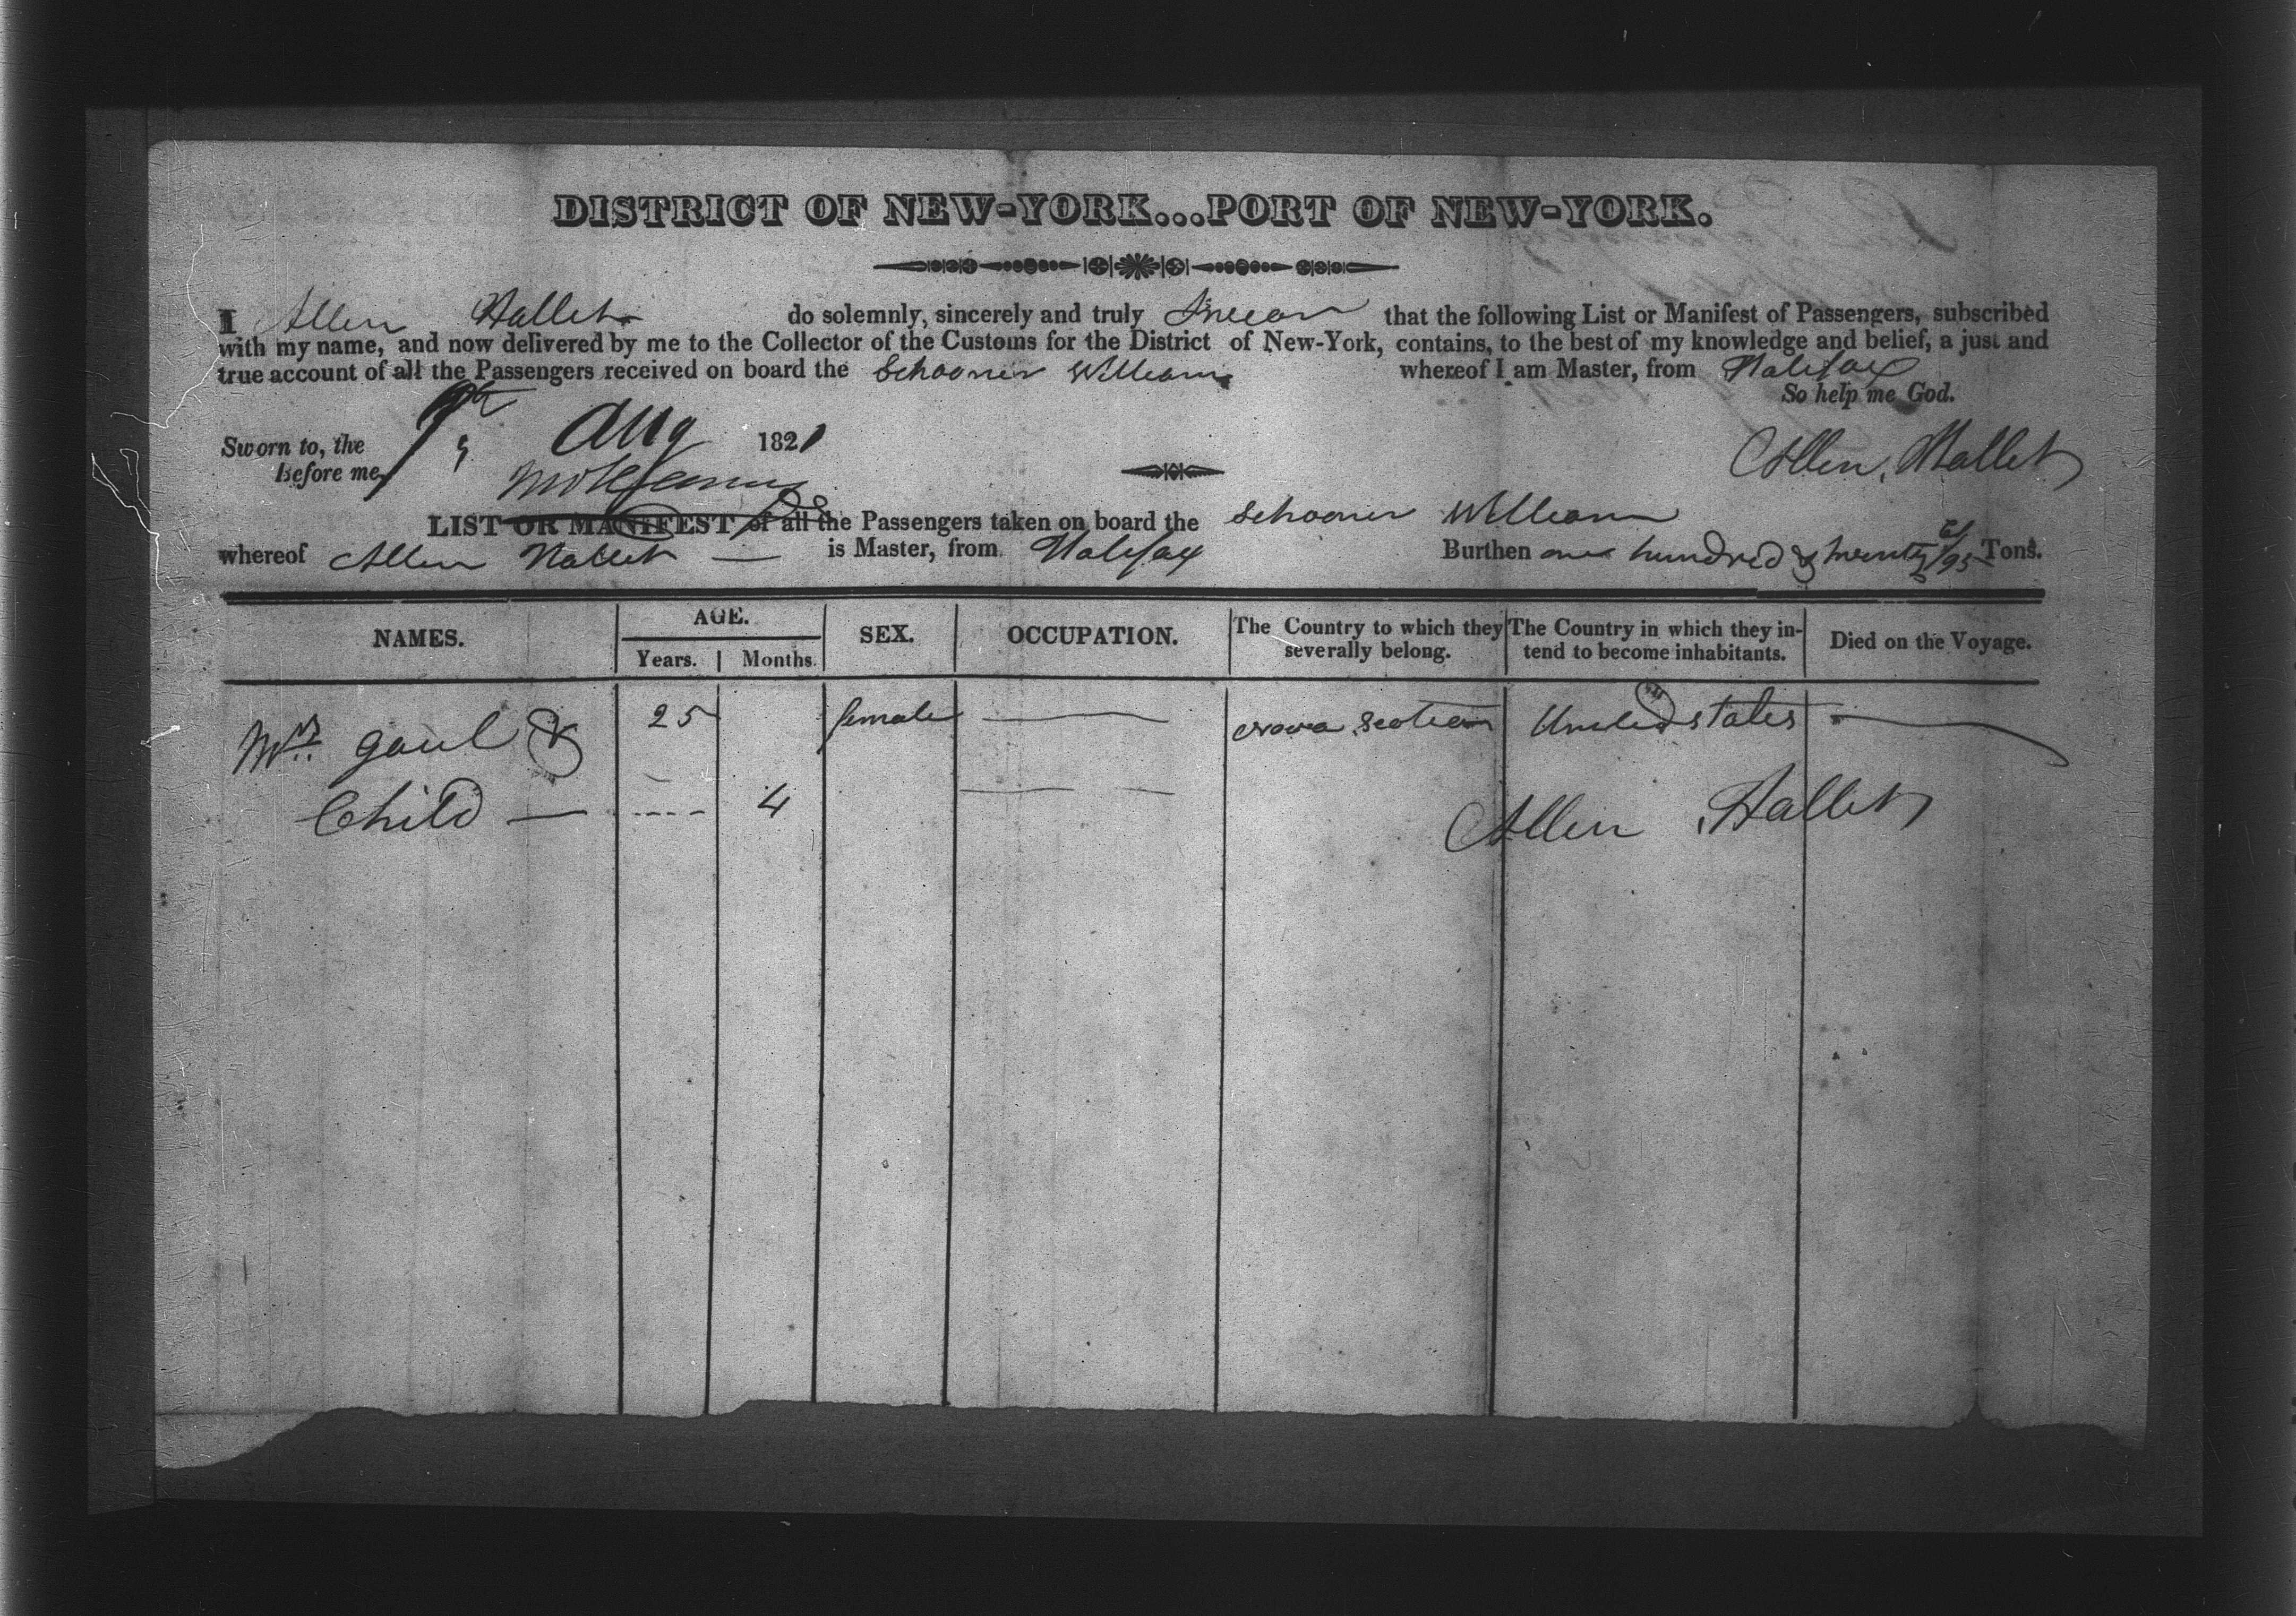 DISTRICT OF NEW-YORK...PORT OF NEW-YORK.
I Allen Hallet do solemnly, sincerely and truly Swear that the following List or Manifest of Passengers, subscribed
with my name, and now delivered by me to the Collector of the Customs for the District of New-York, contains, to the best of my knowledge and belief, a just and
true account of all the Passengers received on board the Schooner William whereof I am Master, from Halifax
So help me God.
Sworn to, the Aug 1821
Before me,
Allen Hallet
LIST OR MANIFEST of all the Passengers taken on board the Schooner William
whereof Allen Hallet — is Master, from Halifax Burthen one hundred & twenty /95 Tons.
NAMES. AGE. SEX. OCCUPATION. The Country to which they severally belong. The Country in which they intend to become inhabitants. Died on the Voyage.
Years. Months.
Mrs. gaul & 25 female — Nova Scotia United states —
Child — ---- 4 — —
Allen Hallet